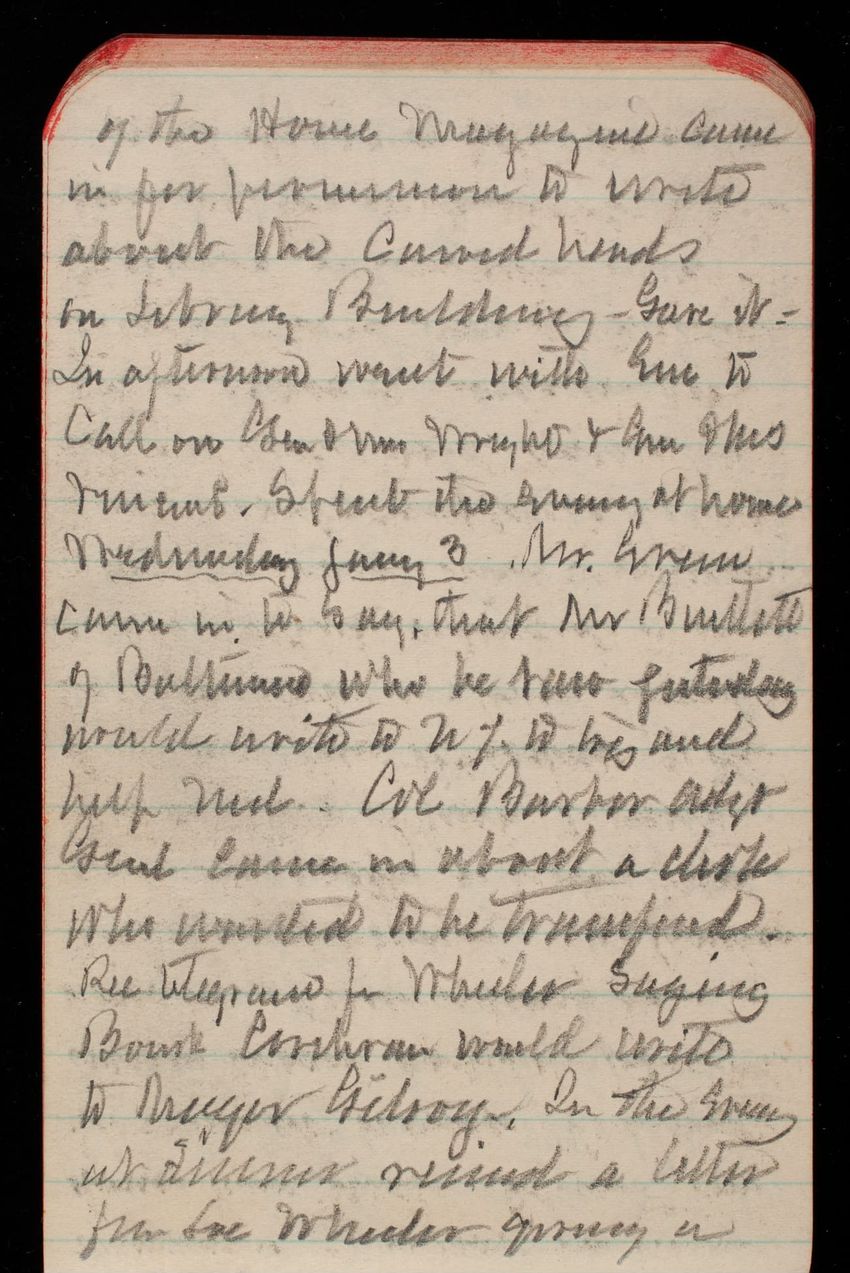 of the Home Magazine came
in for permission to write
about the Carved heads
on Library Building - Gave it -
In afternoon went with Eva to
Call on Gen & Mrs Wright & Gen &
Spent the evening at home
Wednesday Jany 3. Mr. Green
came in to say, that Mr Bartlett
of Baltimore who he saw yesterday
would write to N Y. to try and
help Ned. Col Barber Adjt
Genl came in about a clerk
who wanted to be transferred.
Rec telegram fr Wheeler saying
Bourk Cochran would write
to Mayor Gilroy. In the Eveng
at dinner received a letter
from Wheeler giving a